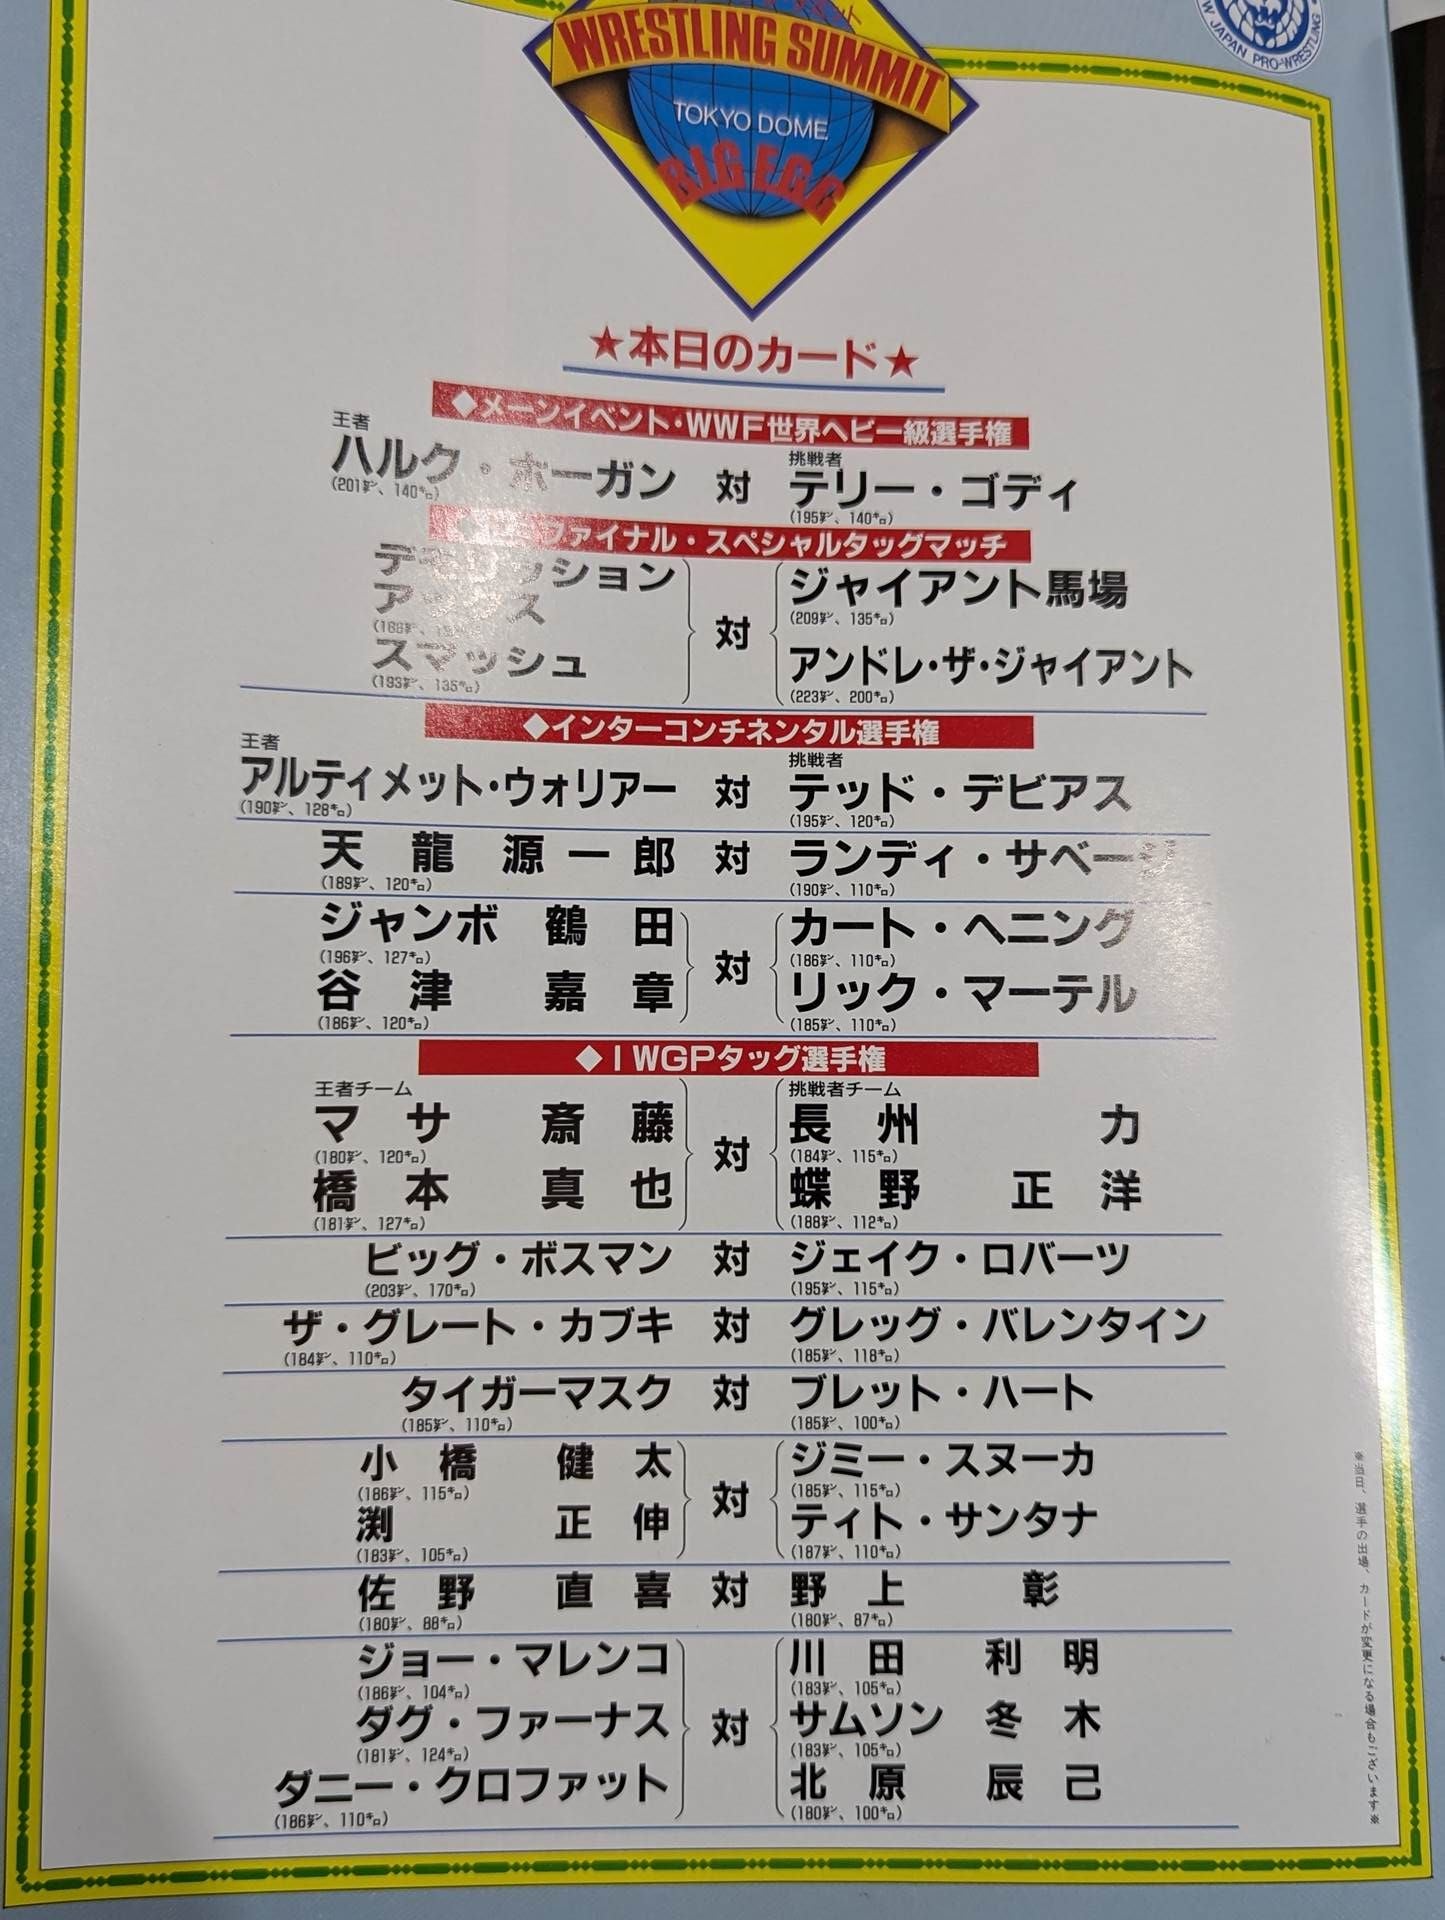 WRESTLING SUMMIT
TOKYO DOME
B.I.G E.G.G
JAPAN PRO-WRESTLING
★本日のカード★
◆メーンイベント・WWF世界ヘビー級選手権
王者
ハルク・ホーガン
(201㌢、140㌔)
対
挑戦者
テリー・ゴディ
(195㌢、140㌔)
ファイナル・スペシャルタッグマッチ
デモリッション
アックス
スマッシュ
(193㌢、135㌔)
対
ジャイアント馬場
(209㌢、135㌔)
アンドレ・ザ・ジャイアント
(223㌢、200㌔)
◆インターコンチネンタル選手権
王者
アルティメット・ウォリアー
(190㌢、128㌔)
対
挑戦者
テッド・デビアス
(195㌢、120㌔)
天龍源一郎
(189㌢、120㌔)
対
ランディ・サベージ
(190㌢、110㌔)
ジャンボ鶴田
(196㌢、127㌔)
谷津嘉章
(186㌢、120㌔)
対
カート・ヘニング
(186㌢、110㌔)
リック・マーテル
(185㌢、110㌔)
◆IWGPタッグ選手権
王者チーム
マサ斎藤
(180㌢、120㌔)
橋本真也
(181㌢、127㌔)
対
挑戦者チーム
長州力
(184㌢、115㌔)
蝶野正洋
(188㌢、112㌔)
ビッグ・ボスマン
(203㌢、170㌔)
対
ジェイク・ロバーツ
(195㌢、115㌔)
ザ・グレート・カブキ
(184㌢、110㌔)
対
グレッグ・バレンタイン
(185㌢、118㌔)
タイガーマスク
(185㌢、110㌔)
対
ブレット・ハート
(185㌢、100㌔)
小橋健太
(186㌢、115㌔)
渕正伸
(183㌢、105㌔)
対
ジミー・スヌーカ
(185㌢、115㌔)
ティト・サンタナ
(187㌢、110㌔)
佐野直喜
(180㌢、88㌔)
対
野上彰
(180㌢、87㌔)
ジョー・マレンコ
(186㌢、104㌔)
ダグ・ファーナス
(181㌢、124㌔)
ダニー・クロファット
(186㌢、110㌔)
対
川田利明
(183㌢、105㌔)
サムソン冬木
(183㌢、105㌔)
北原辰己
(180㌢、100㌔)
※当日、選手の出場、カードが変更になる場合もございます※